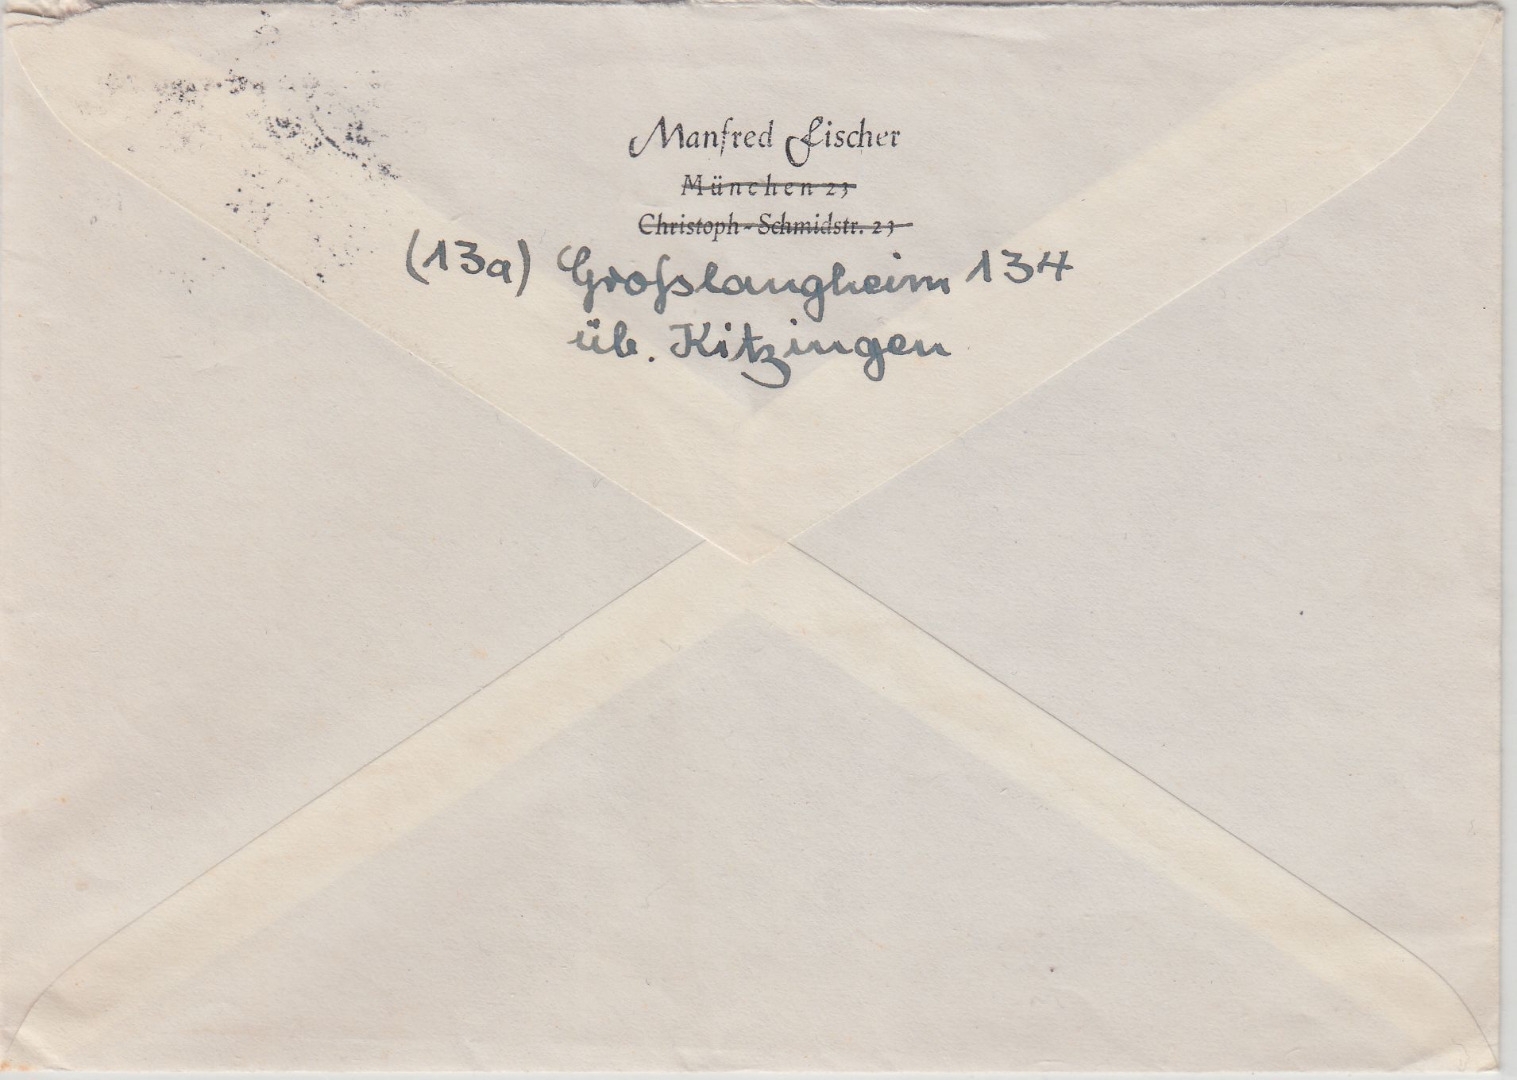 Manfred Fischer
München 23
Christoph-Schmidstr. 23
(13a) Großlangheim 134
üb. Kitzingen